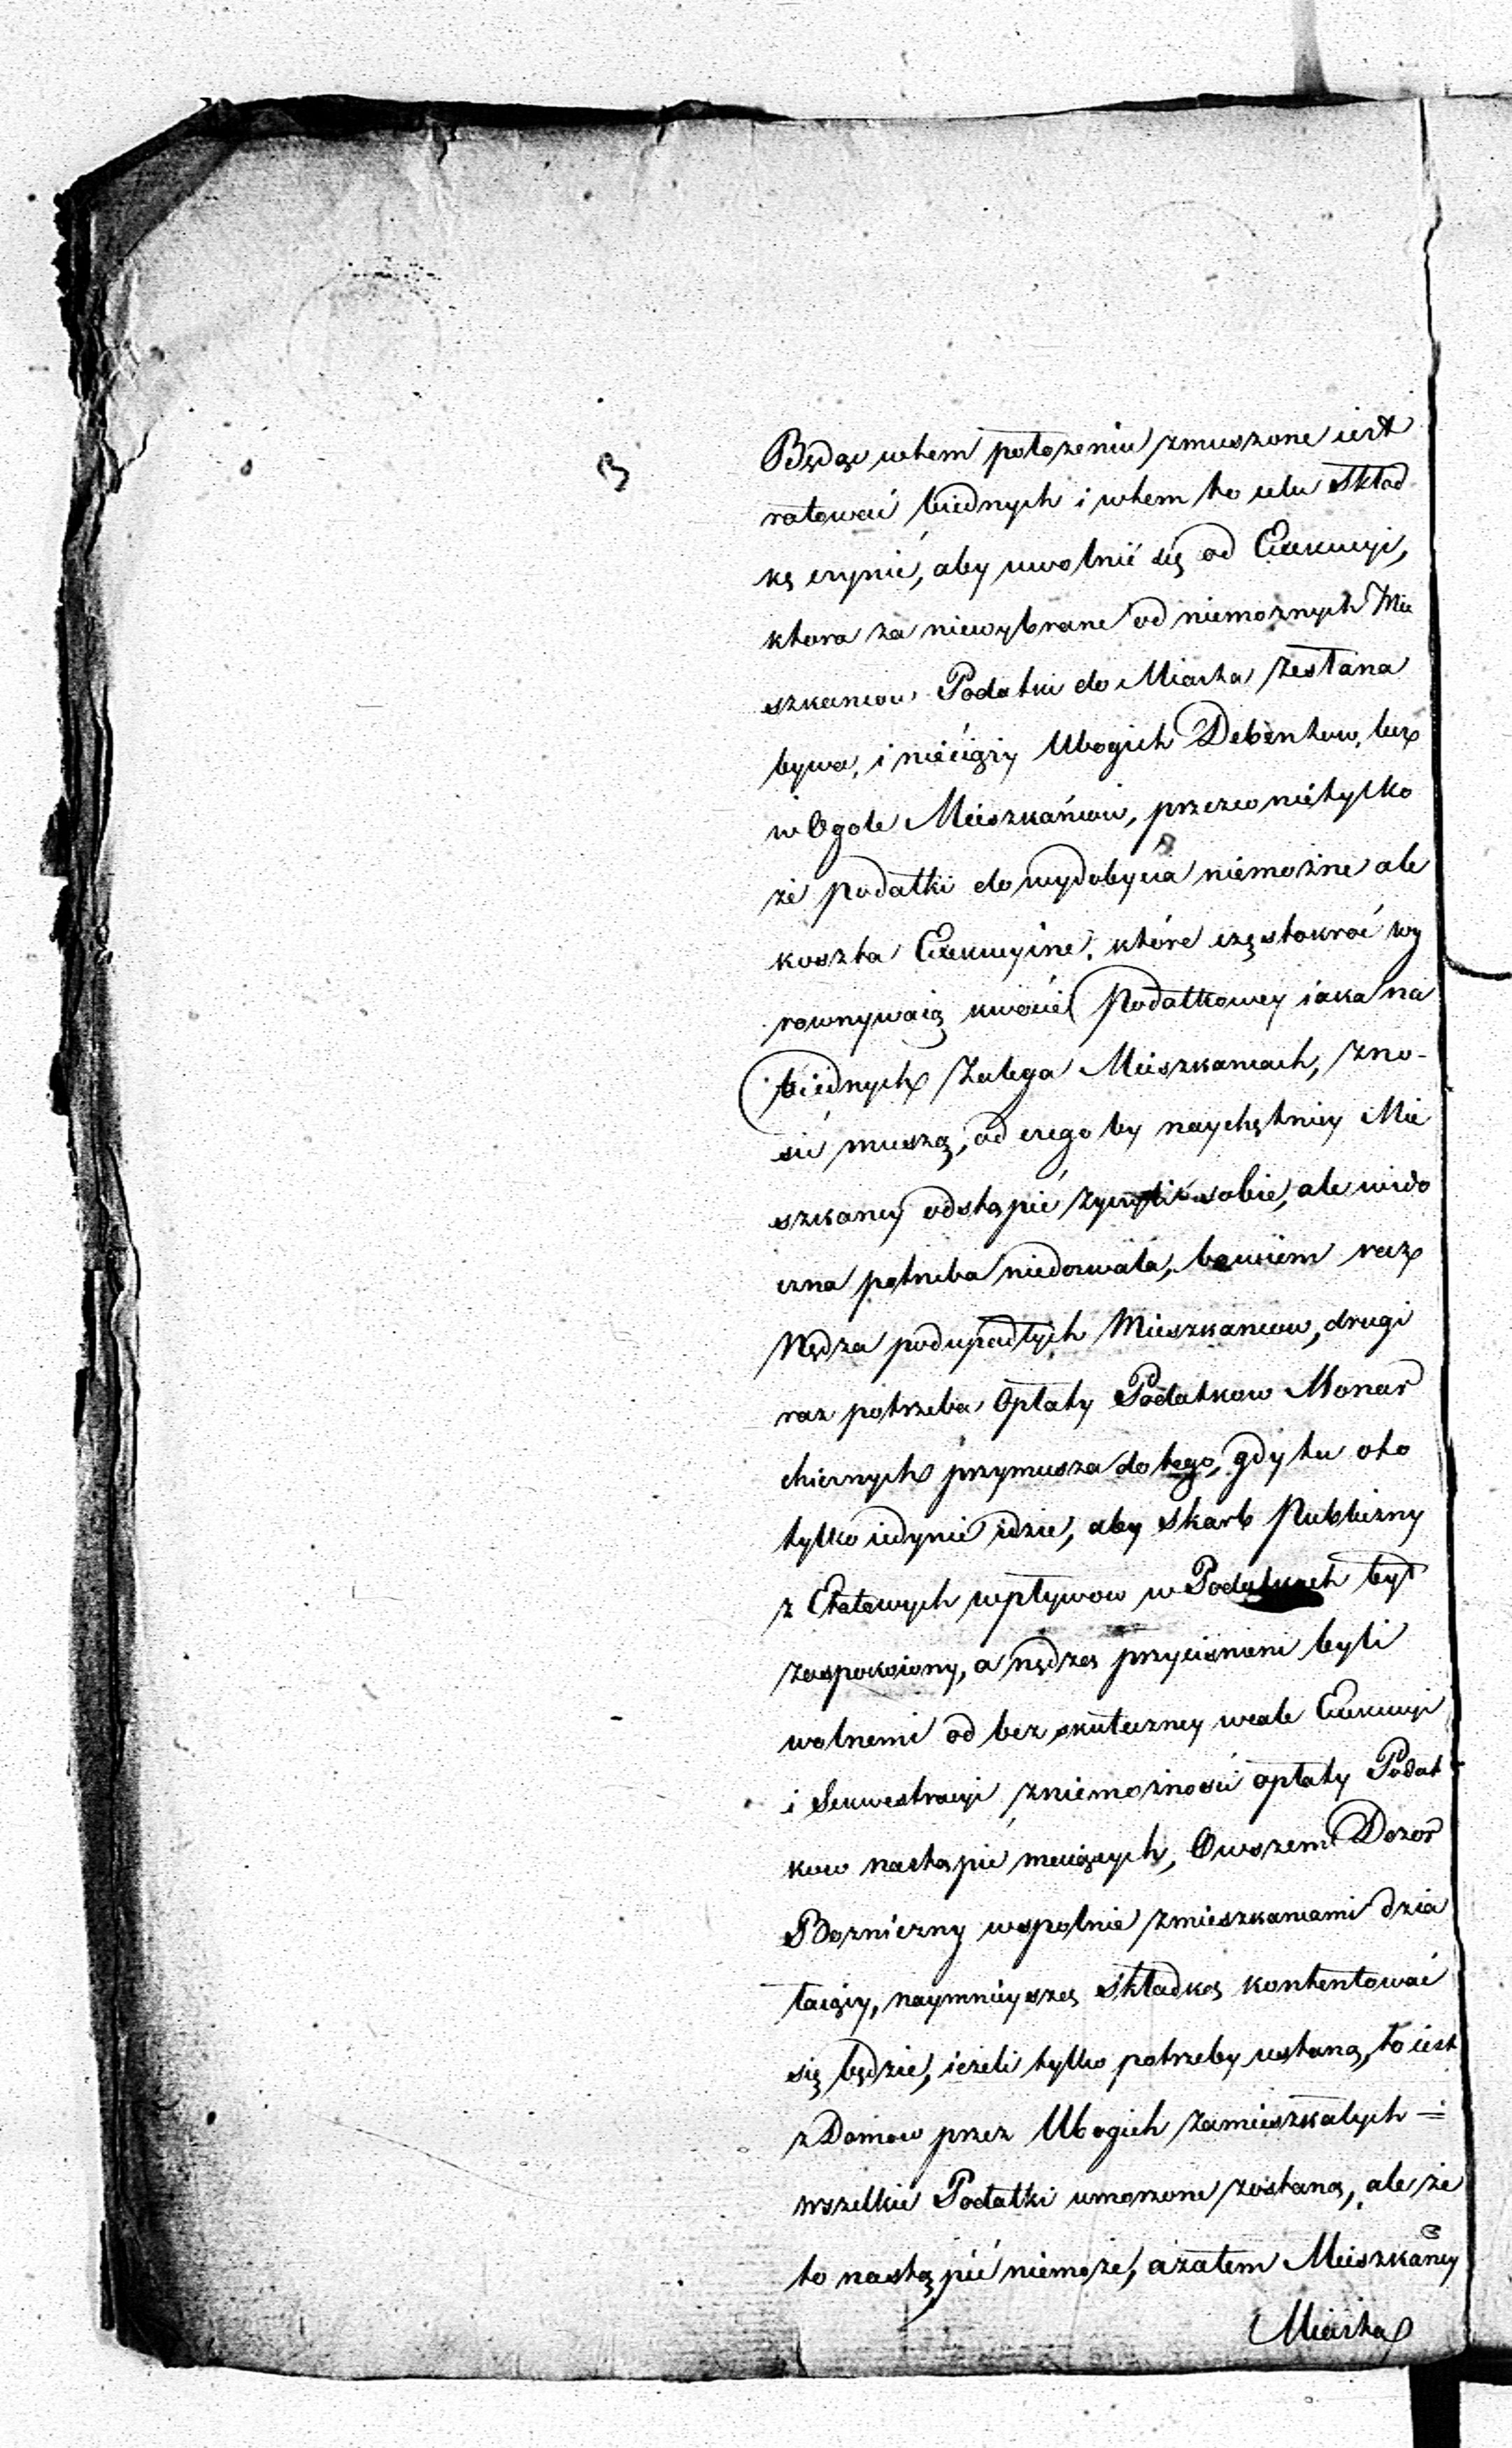 Będąc wtem położeniu zmuszone iest
ratować biednych i wtem to celu skład
kę czynić, aby uwolnić się od Exekucyi,
ktora za niewybrane od niemoznych Mie
szkancow Podatki do Miasta zesłana
bywa, i nieciązy Ubogich Debentow, lecz
w Ogole Mieszkańcow, przezco nietylko
że podatki do wydobycia niemożne ale
koszta Exekucyine, które częstokroć wy
rownywaią kwocie Podatkowey iaka na
biednych zalega Mieszkancach, zno-
sić muszą, od czego by naychętniey Mie
szkancy odstąpić życzyli sobie, ale wido
czna potrzeba niedozwala, bowiem raz
Nędza podupadłych Mieszkancow, drugi
raz potrzeba Opłaty Podatkow Monar
chicznych przymusza do tego, gdy tu oto
tylko iedynie idzie, aby Skarb Publiczny
z Etatowych wpływow w Podatkach był
zaspokoiony, a nędzą przycisnieni byli
wolnemi od bezskuteczney wcale Exekucyi
i Sekwestracyi zniemożnosci opłaty Podat
kow nastąpić maiących, Owszem Dozor
Bozniczny wspolnie zmieszkancami dzia
łaiący, naymnieyszą składką kontentować
się będzie, ieżeli tylko potrzeby ustaną, to iest
z Domow przez Ubogich zamieszkałych =
wszelkie Podatki umorzone zostaną, ale że
to nastąpić niemoże, azatem Mieszkańcy
Miasta